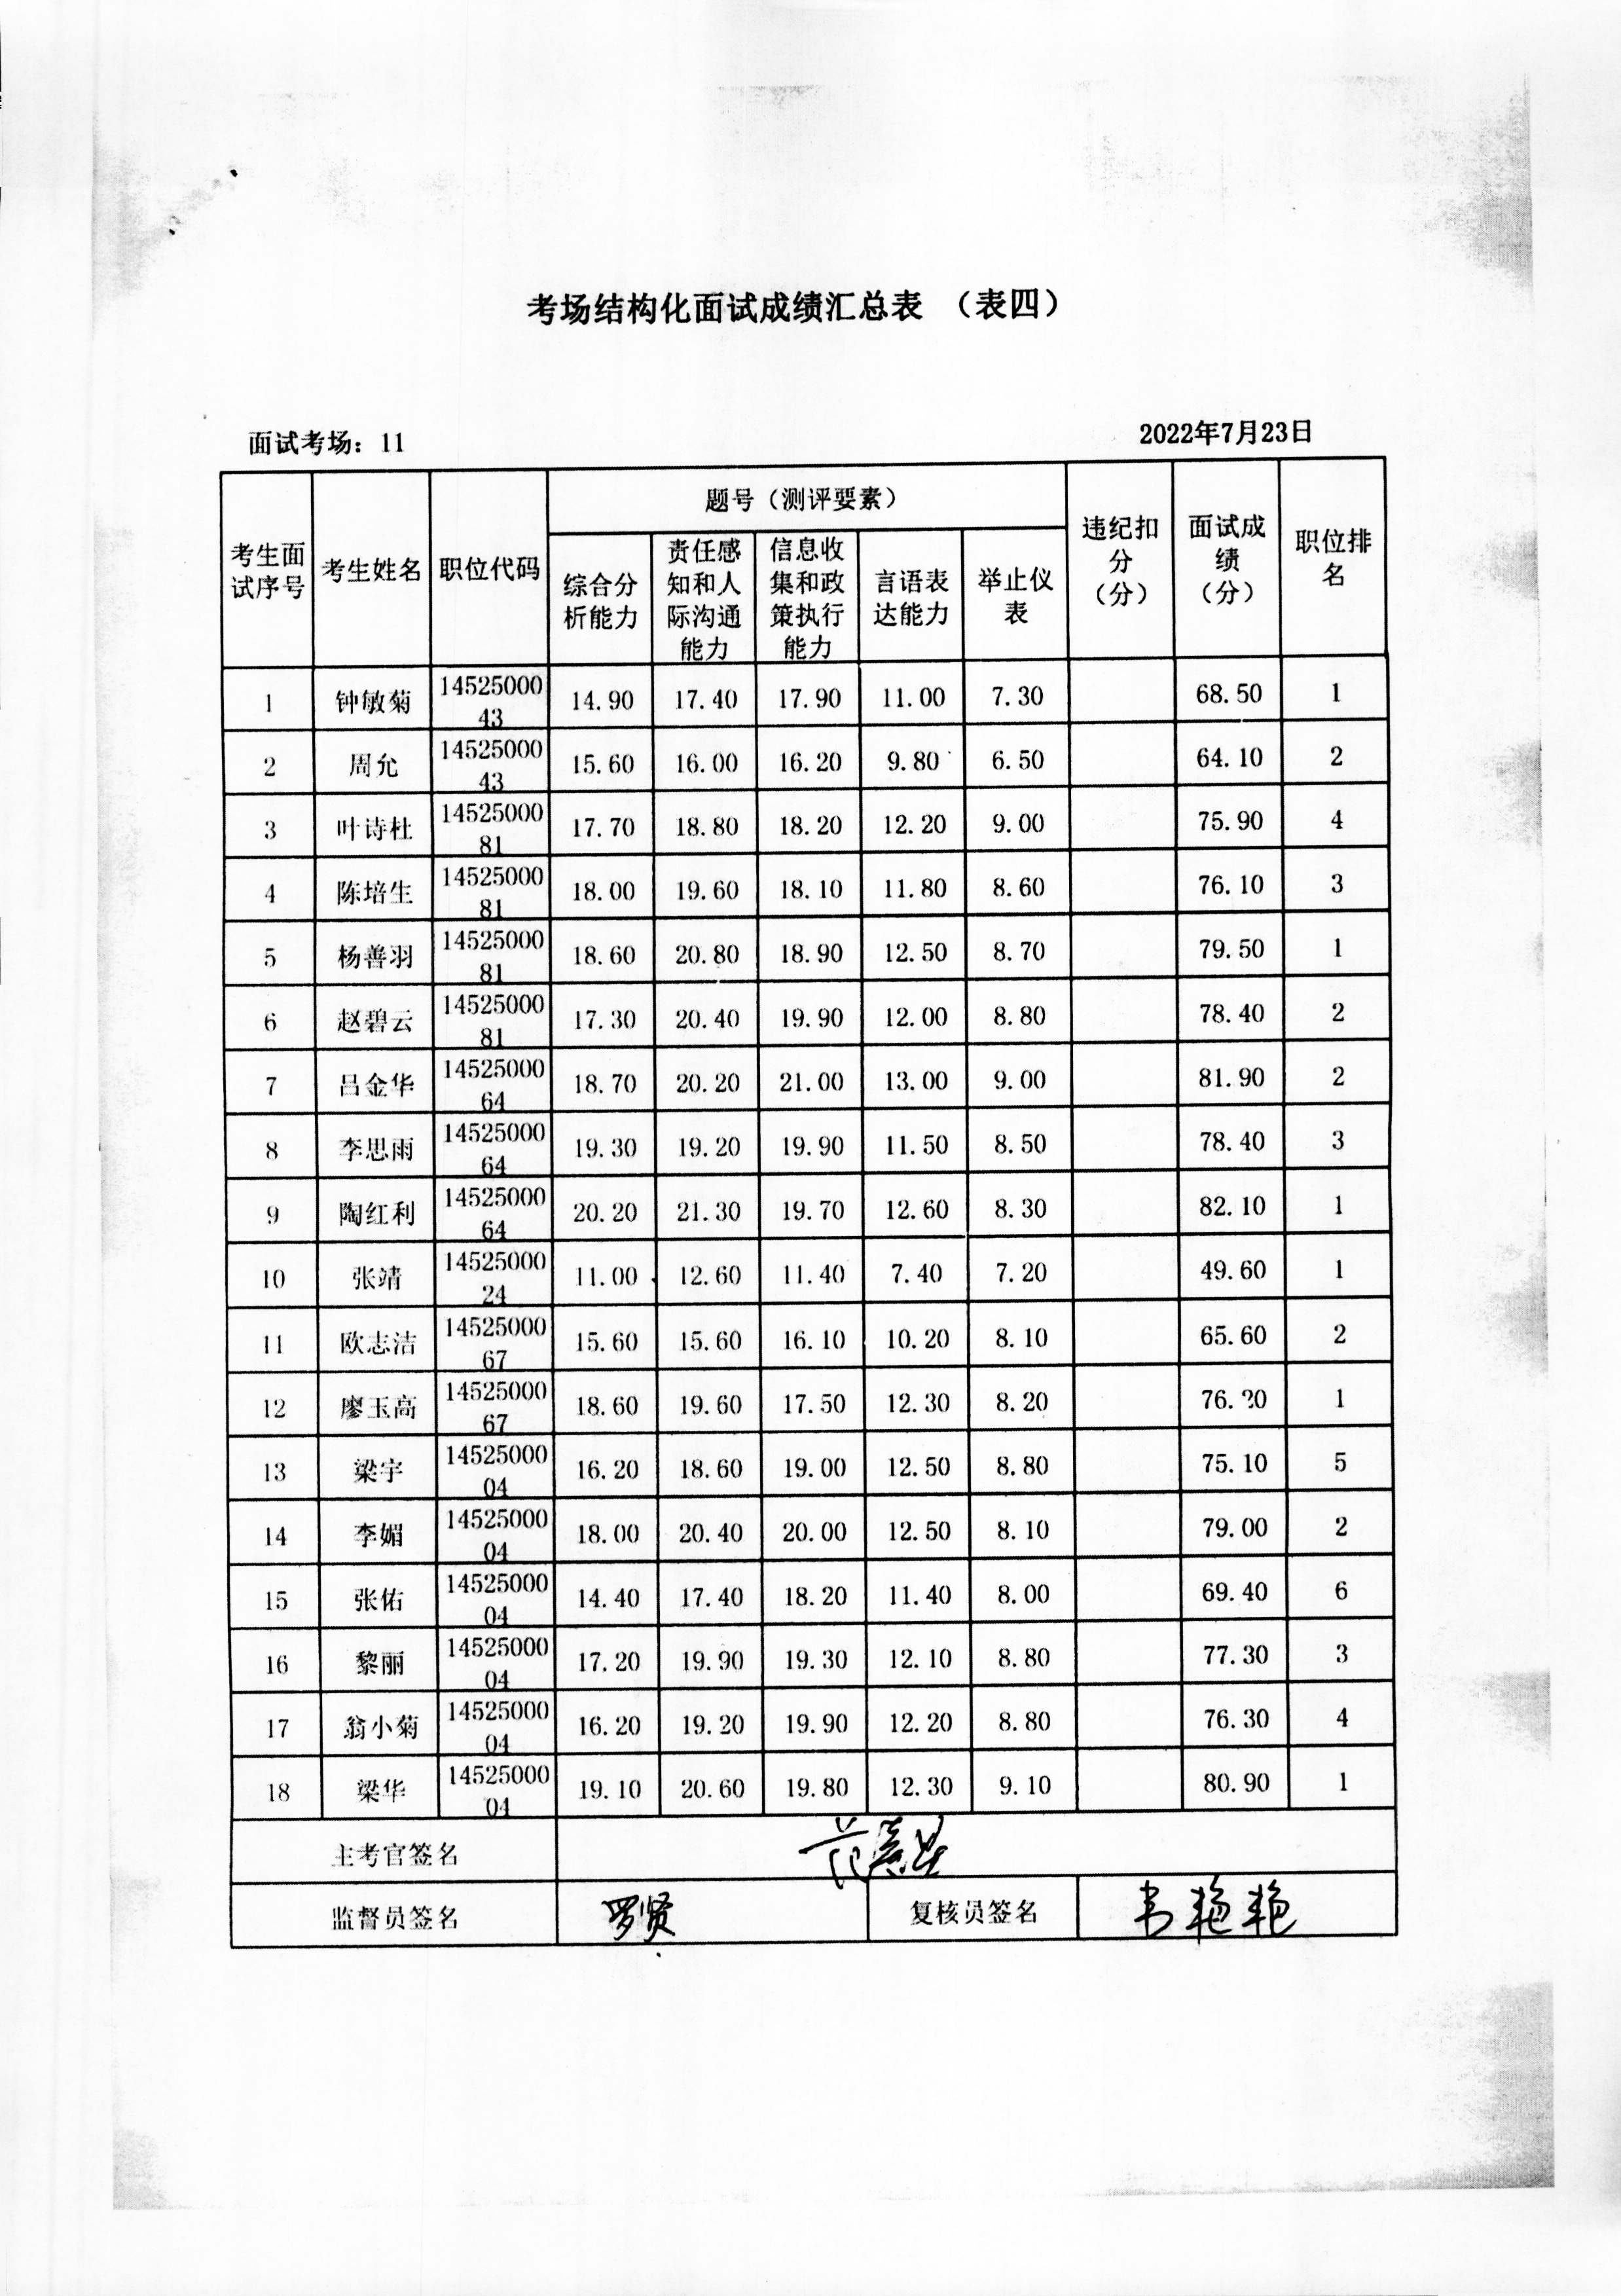 考场结构化面试成绩汇总表 （表四）
面试考场：11 2022年7月23日
考生面试序号 考生姓名 职位代码 题号（测评要素） 违纪扣分（分） 面试成绩（分） 职位排名
综合分析能力 责任感知和人际沟通能力 信息收集和政策执行能力 言语表达能力 举止仪表
1 钟敏菊 1452500043 14.90 17.40 17.90 11.00 7.30 68.50 1
2 周允 1452500043 15.60 16.00 16.20 9.80 6.50 64.10 2
3 叶诗杜 1452500081 17.70 18.80 18.20 12.20 9.00 75.90 4
4 陈培生 1452500081 18.00 19.60 18.10 11.80 8.60 76.10 3
5 杨善羽 1452500081 18.60 20.80 18.90 12.50 8.70 79.50 1
6 赵碧云 1452500081 17.30 20.40 19.90 12.00 8.80 78.40 2
7 吕金华 1452500064 18.70 20.20 21.00 13.00 9.00 81.90 2
8 李思雨 1452500064 19.30 19.20 19.90 11.50 8.50 78.40 3
9 陶红利 1452500064 20.20 21.30 19.70 12.60 8.30 82.10 1
10 张靖 1452500024 11.00 12.60 11.40 7.40 7.20 49.60 1
11 欧志洁 1452500067 15.60 15.60 16.10 10.20 8.10 65.60 2
12 廖玉高 1452500067 18.60 19.60 17.50 12.30 8.20 76.20 1
13 梁宇 1452500004 16.20 18.60 19.00 12.50 8.80 75.10 5
14 李媚 1452500004 18.00 20.40 20.00 12.50 8.10 79.00 2
15 张佑 1452500004 14.40 17.40 18.20 11.40 8.00 69.40 6
16 黎丽 1452500004 17.20 19.90 19.30 12.10 8.80 77.30 3
17 翁小菊 1452500004 16.20 19.20 19.90 12.20 8.80 76.30 4
18 梁华 1452500004 19.10 20.60 19.80 12.30 9.10 80.90 1
主考官签名
监督员签名 罗贤 复核员签名 韦艳艳